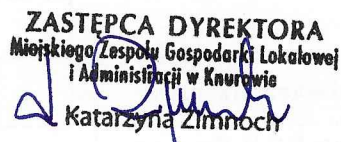 ZASTĘPCA DYREKTORA
Miejskiego Zespołu Gospodarki Lokalowej
i Administracji w Knurowie
Katarzyna Zimnoch